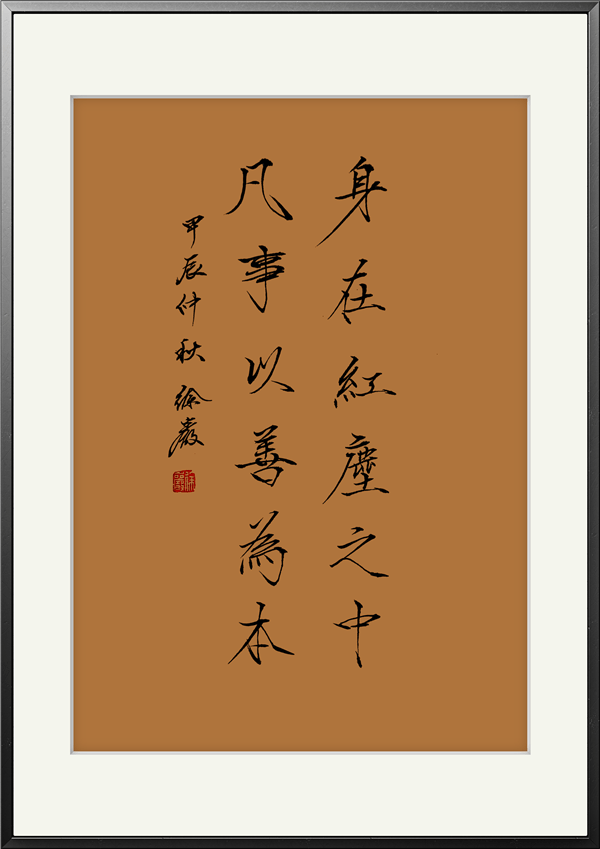 身在紅塵之中
凡事以善為本
甲辰仲秋 徐巖